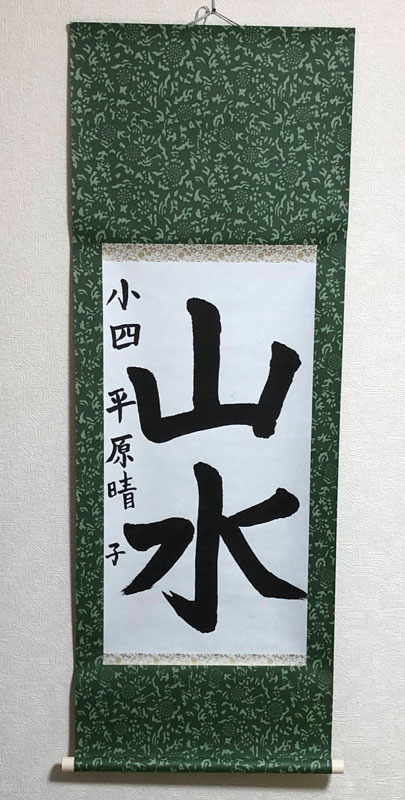 山水
小四 平原晴子